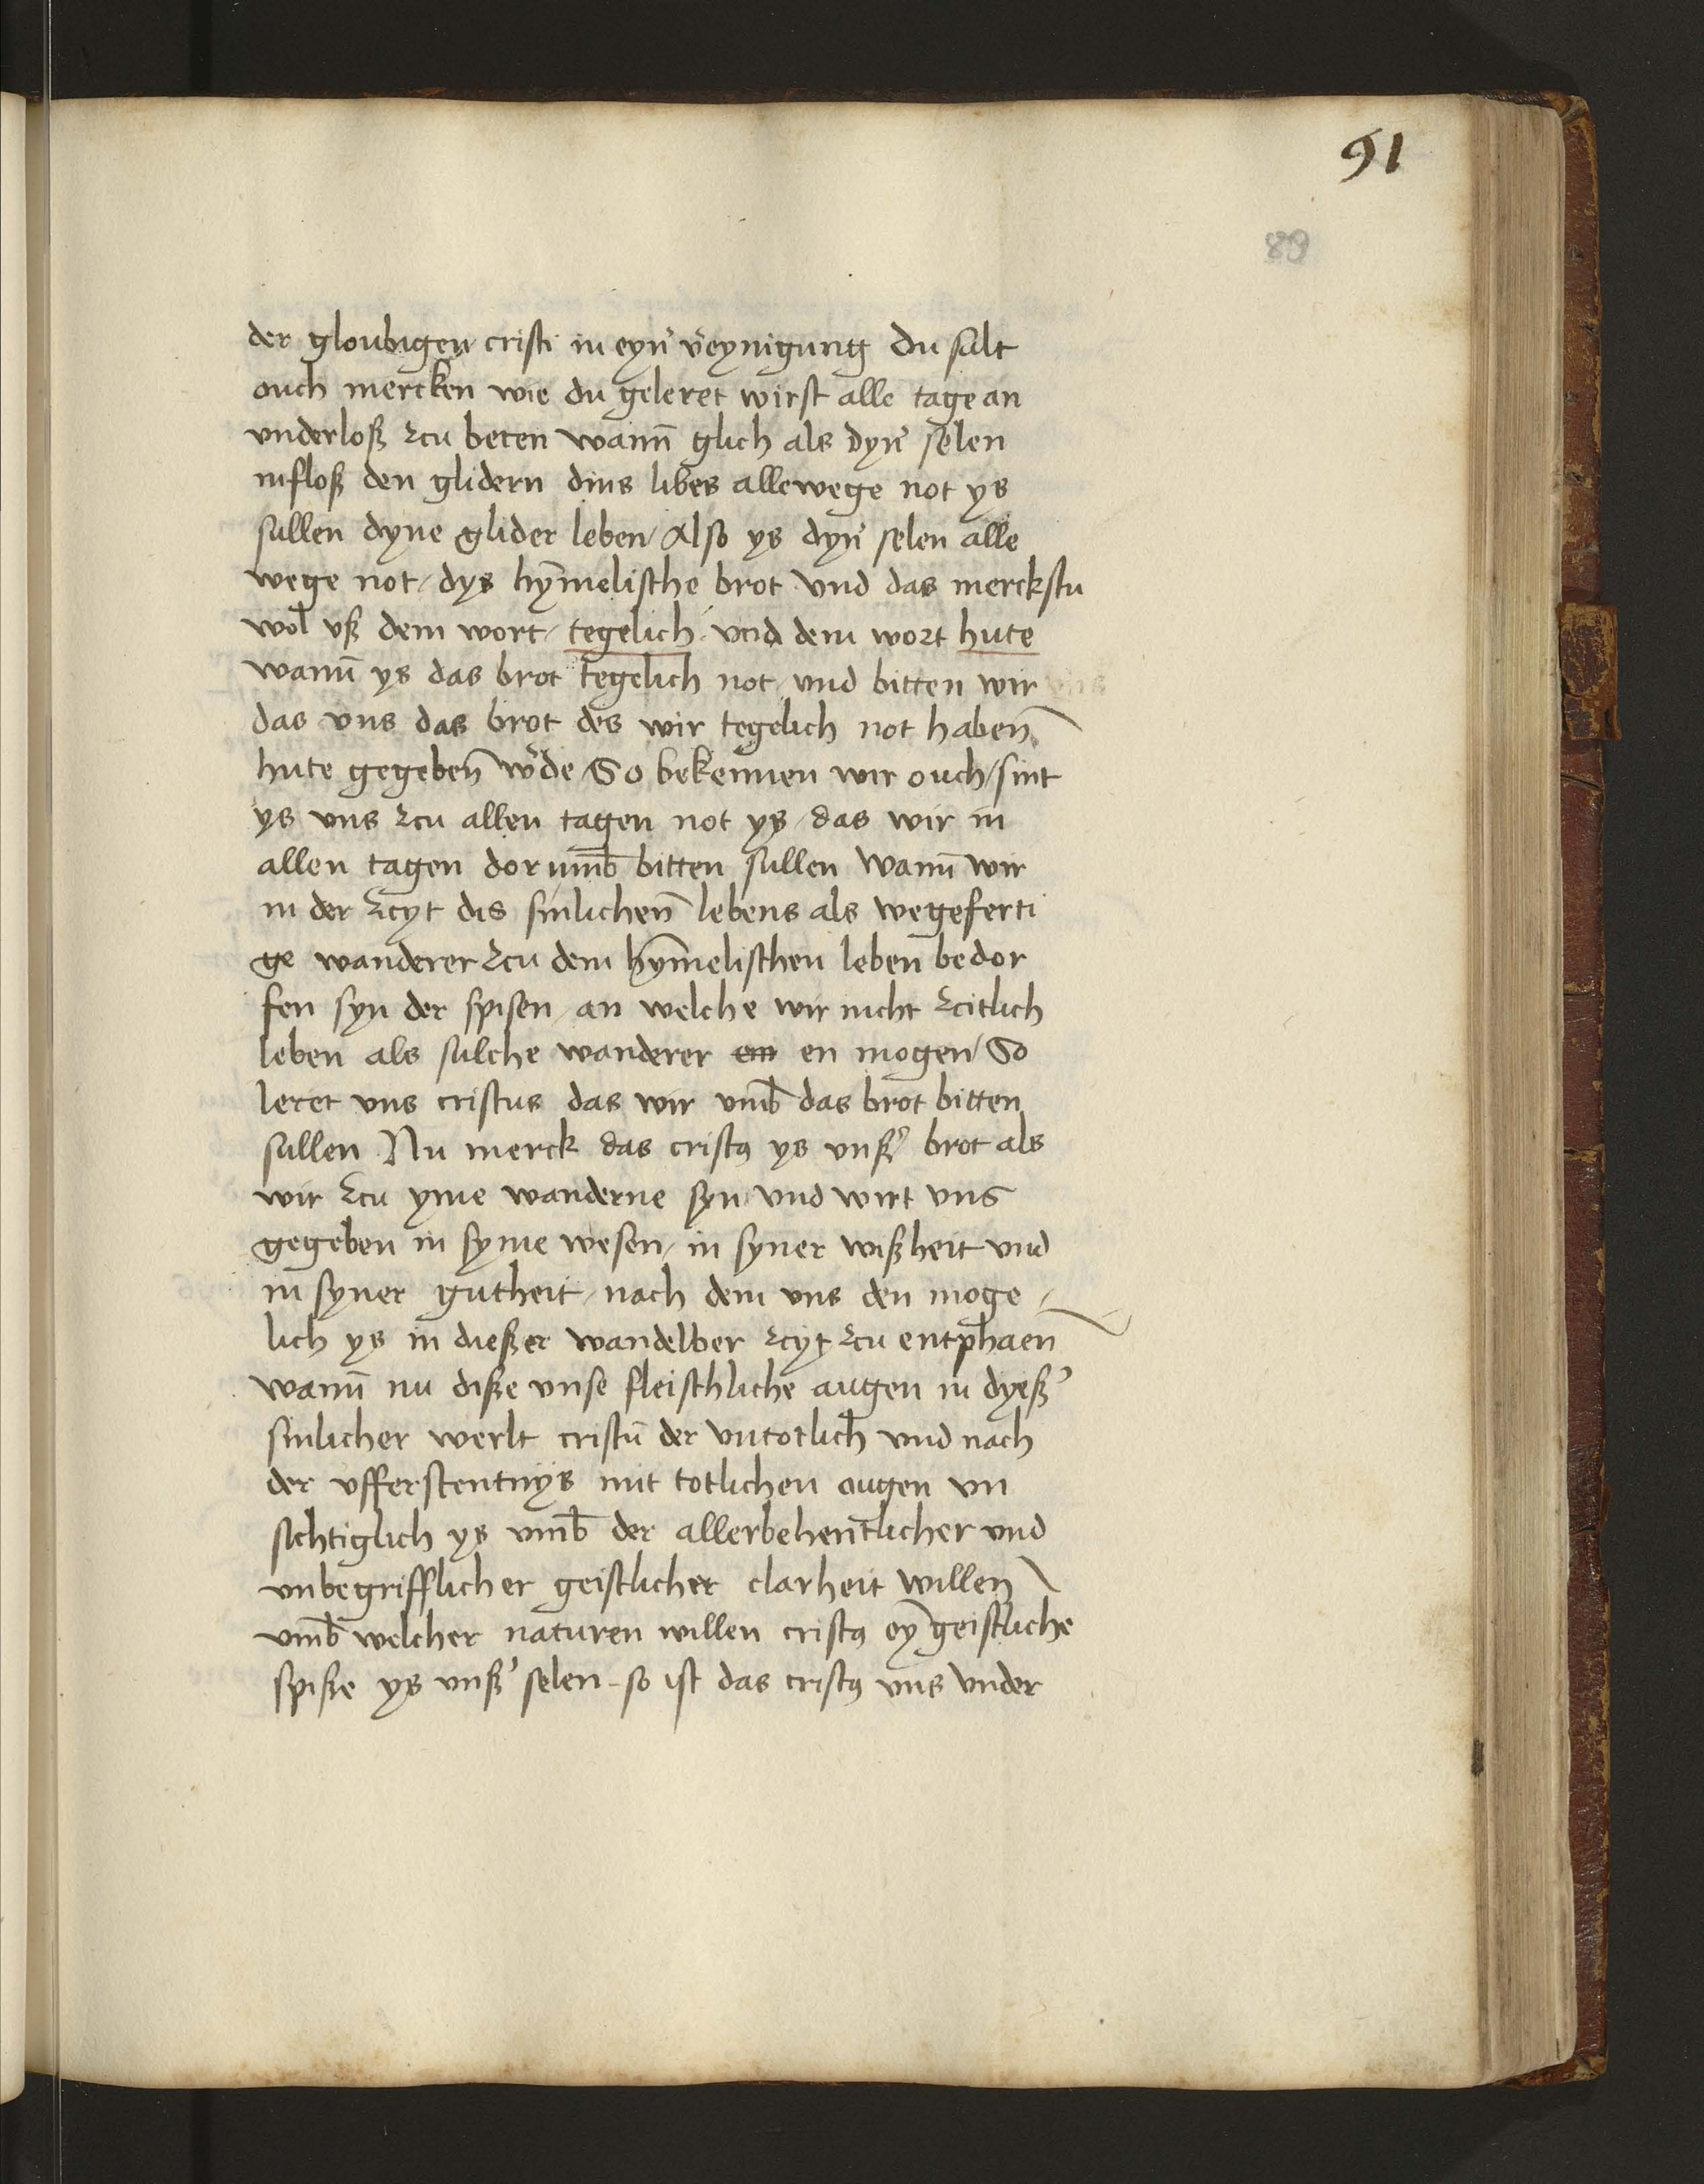 91
89
der gloubigen cristi in eyn̄ v̄eynigung Du salt
ouch mercken wie du geleret wirst alle tage an
vnderloß zcu beten wann̄ glich als dyn̄ selen
infloß den glidern dins libes allewege not ys
sullen dyne glider leben / Also ys dyn̄ selen alle
wege not / dys hym̄elische brot vnd das merckstu
wol vß dem wort / tegelich / vnd dem wort hute
wann̄ ys das brot tegelich not / vnd bitten wir
das vns das brot des wir tegelich not haben̄
hute gegeben̄ w̄de / So bekennen wir ouch / sint
ys vns zcu allen tagen not ys / das wir in
allen tagen dor vmb̄ bitten sullen wann̄ wir
in der zcyt dis sinlichen̄ lebens als wegeferti
ge wanderer zcu dem hym̄elischen leben̄ bedor
fen syn der spisen / an welche wir nicht zcitlich
leben als sulche wanderer en mogen / So
leret vns cristus das wir vmb̄ das brot bitten
sullen Nu merck das cristꝰ ys vnßʼ brot als
wir zcu yme wanderne syn vnd wirt vns
gegeben in syme wesen / in syner wißheit vnd
in syner gutheit / nach dem vns den moge /
lich ys in dießer wandelber zcyt zcu entphaen̄
wann̄ nu diße vnse fleischliche augen in dyeßʼ
sinlicher werlt cristū der vntotlich vnd nach
der vfferstentnys mit totlichen augen vn
sichtiglich ys vmb̄ der allerbehentlicher vnd
vnbegrifflicher geistlicher clarheit willen
vmb̄ welcher naturen willen cristꝰ ey̅ geistliche
spiße ys vnßʼ selen - so ist das cristꝰ vns vnder